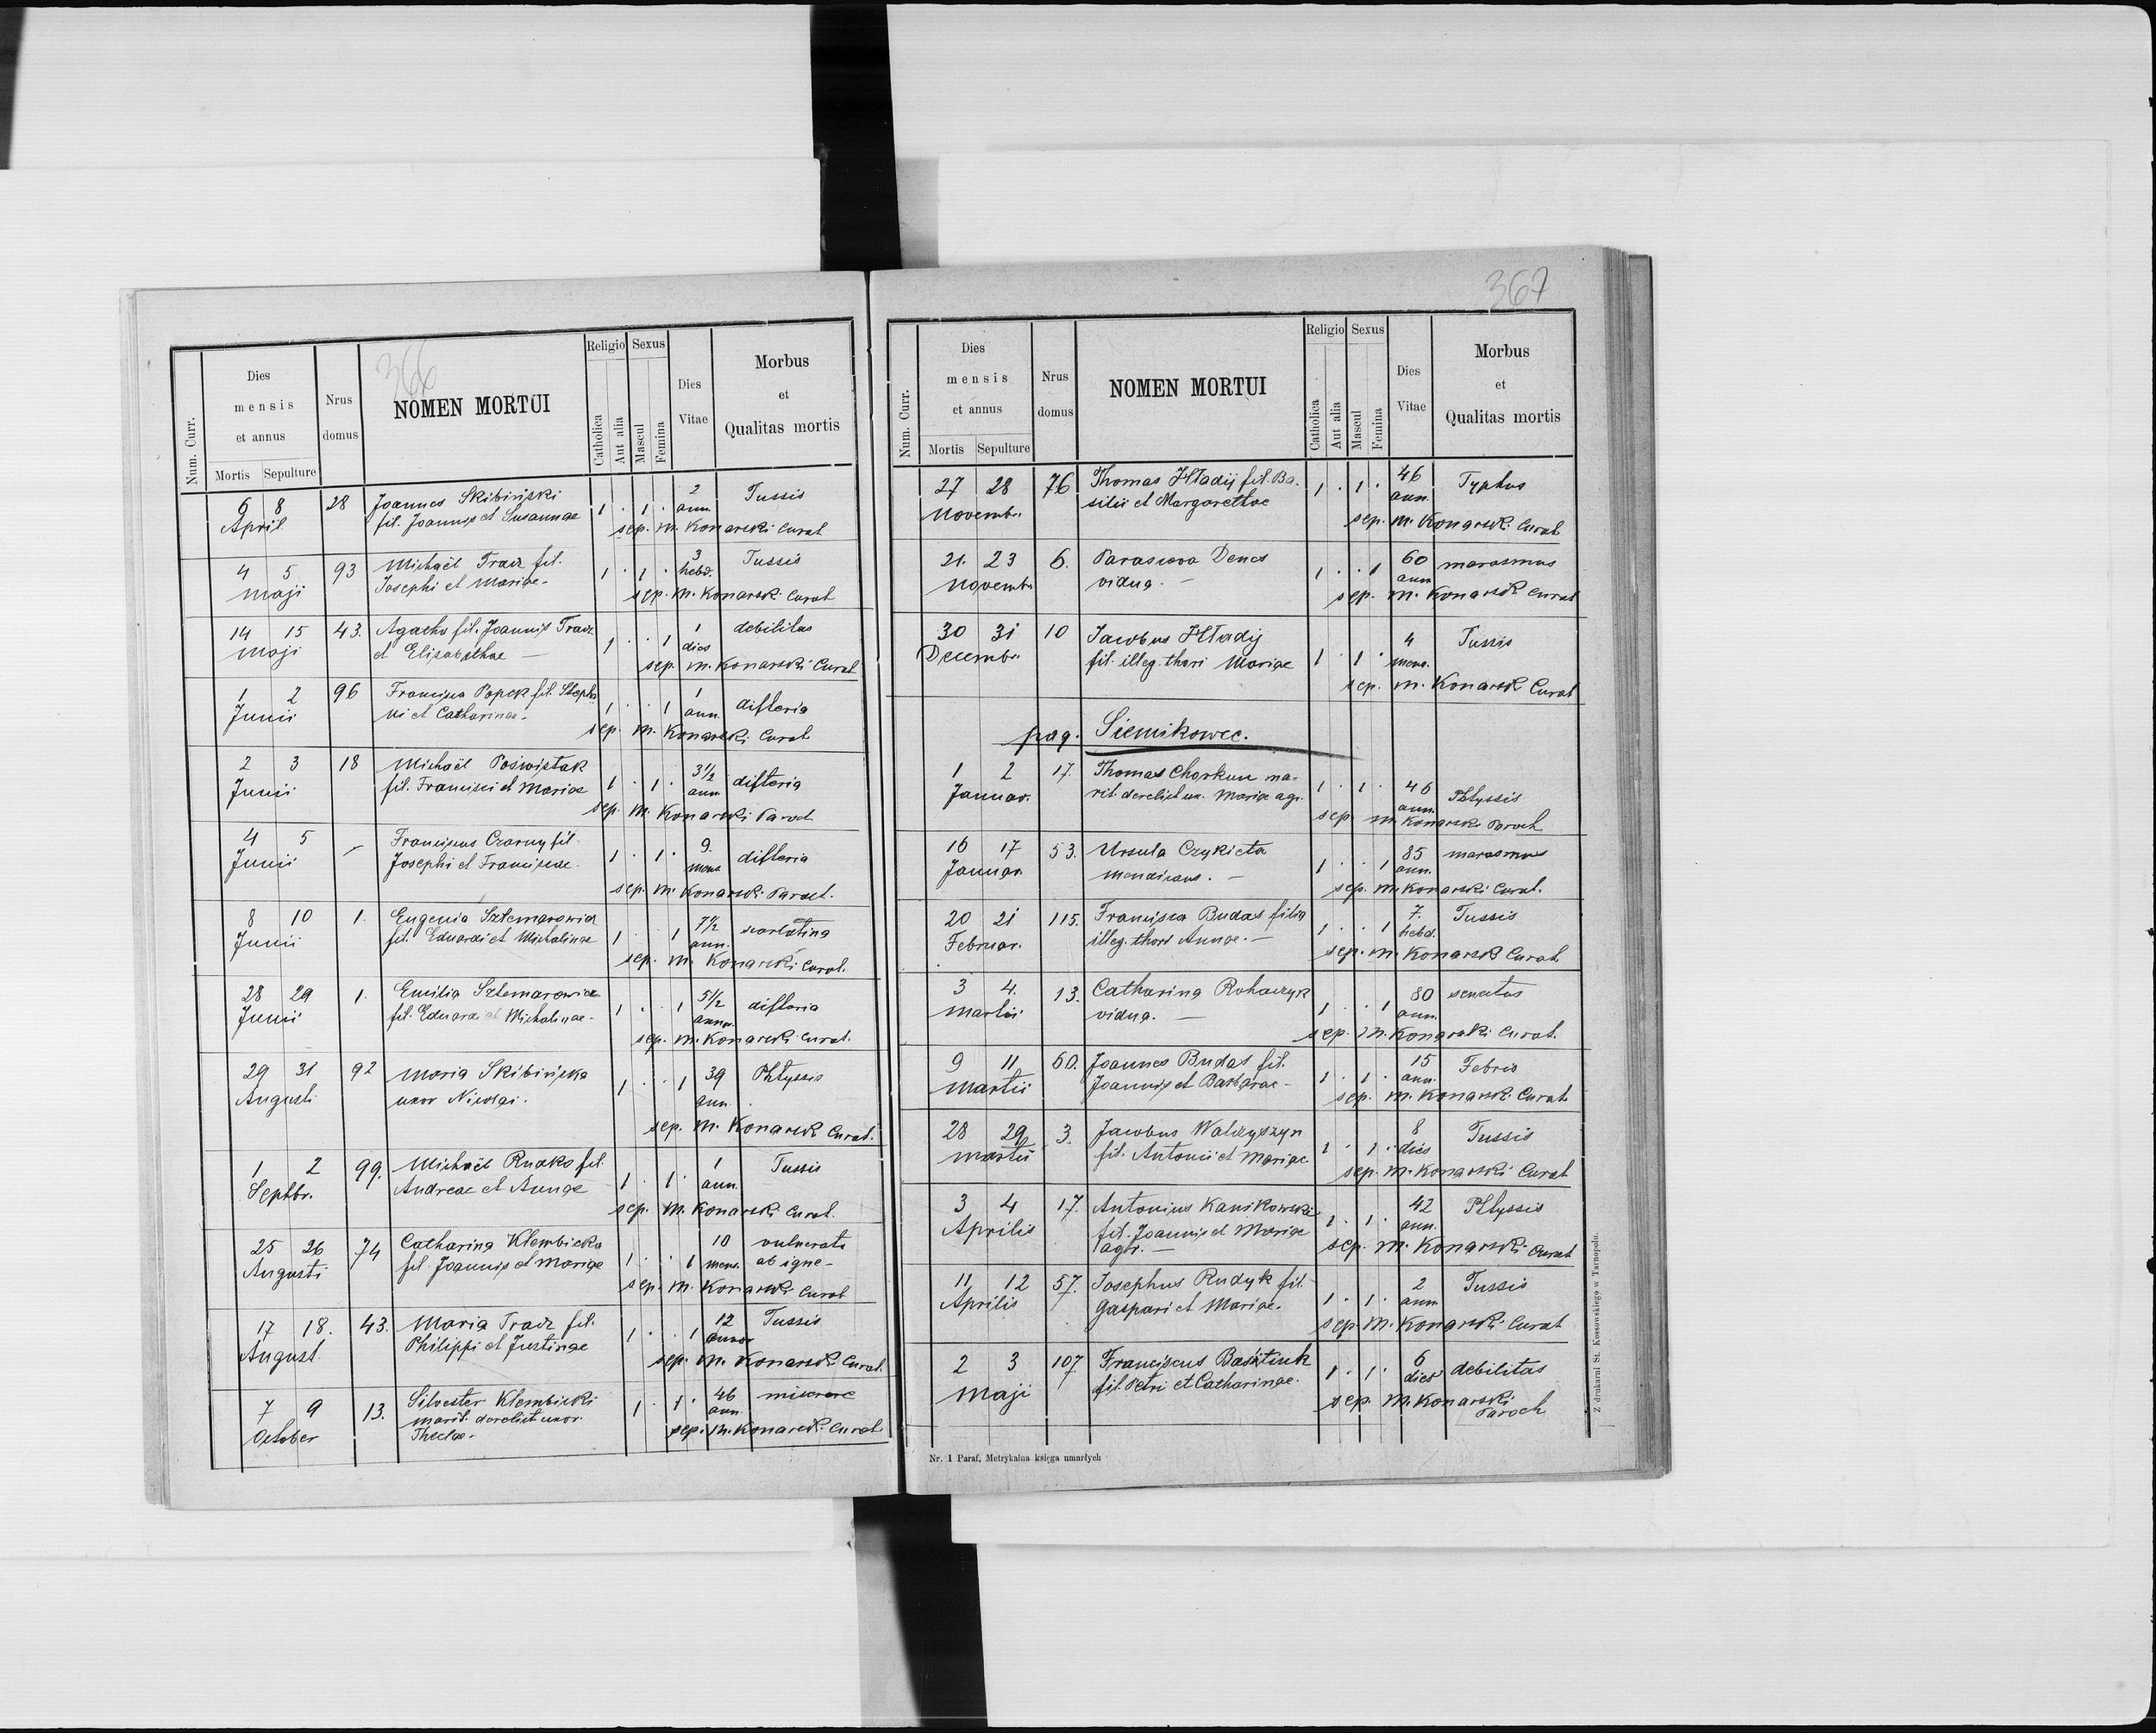 366
Num. Curr.
Dies mensis et annus
Mortis Sepulture
Nrus domus
NOMEN MORTUI
Religio
Catholica
Aut alia
Sexus
Mascul
Femina
Dies Vitae
Morbus et Qualitas mortis
6 8 28 Joannes Skibiński 1 . 1 . 2 Tussis
April fil. Joannis et Susannae ann.
sep. M. Konarski Curat
4 5 93 Michaël Tracz fil. 1 . 1 . 3 Tussis
Maji Josephi et Mariae hebd.
sep. M. Konarski Curat
14 15 43. Agatha fil. Joannis Tracz 1 . . 1 1 debilitas
Maji et Elisabethae dies
sep. M. Konarski Curat
1 2 96 Francisca Popek fil. Stepha 1 . . 1 1 difteria
Junii ni et Catharinae ann.
sep. M. Konarski Curat
2 3 18 Michaël Poświstak 1 . 1 . 3 1/2 difteria
Junii fil. Francisci et Mariae ann.
sep. M. Konarski Paroch
4 5 – Franciscus Czarny fil. 1 . 1 . 9. difteria
Junii Josephi et Franciscae mens
sep. M. Konarski Paroch.
8 10 1. Eugenia Sztemarowicz 1 . . 1 7 1/2 scarlatina
Junii fil. Eduardi et Michalinae ann.
sep. M. Konarski Curat.
28 29 1. Emilia Sztemarowicz 1 . . 1 5 1/2 difteria
Junii fil. Eduardi et Michalinae annor.
sep. M. Konarski Curat.
29 31 92 Maria Skibińska 1 . . 1 39 Phtyssis
Augusti uxor Nicolai. ann.
sep. M. Konarski Curat.
1 2 99. Michaël Rudko fil. 1 . 1 . 1 Tussis
Septbr. Andreae et Annae ann.
sep. M. Konarski Curat.
25 26 74 Catharina Klembicka 1 . . 1 10 vulnerata
Augusti fil. Joannis et Mariae mens. ab igne
sep. M. Konarski Curat
17 18. 43. Maria Tracz fil. 1 . . 1 12 Tussis
August Philippi et Justinae annor
sep. M. Konarski Curat.
7 9 13. Silvester Klembicki 1 . 1 . 46 miserere
October marit. derelict uxor. ann.
Theclae.
sep. M. Konarski Curat.
367
Num. Curr.
Dies mensis et annus
Mortis Sepulture
Nrus domus
NOMEN MORTUI
Religio
Catholica
Aut alia
Sexus
Mascul
Femina
Dies Vitae
Morbus et Qualitas mortis
27 28 76 Thomas Hładij fil. Ba- 1 . 1 . 46 Typhus
Novembr. silii et Margarethae ann.
sep. M. Konarski Curat
21. 23 6. Parascova Dencs 1 . . 1 60 marasmus
Novembr. vidua. – ann
sep. M. Konarski Curat
30 31 10 Jacobus Hładij 1 . 1 . 4 Tussis
Decembr. fil. illeg. thori Mariae mens.
sep. M. Konarski Curat
pag. Siemikowec.
1 2 17. Thomas Chorkun ma- 1 . 1 . 46 Phtyssis
Januar. rit. derelict ux. Mariae agr. ann.
sep. M. Konarski Paroch
16 17 53. Ursula Czykieta 1 . . 1 85 marasmus
Januar. mendicans. – ann.
sep. M. Konarski Curat.
20 21 115. Francisca Budas filia 1 . . 1 7. Tussis
Februar. illeg. thori Annae. – hebd.
sep. M. Konarski Curat.
3 4. 13. Catharina Rohaczyk 1 . . 1 80 senectus
Martii vidua. – ann.
sep. M. Konarski Curat.
9 11 60. Joannes Budas fil. 1 . 1 . 15 Febris
Martii Joannis et Barbarae – ann.
sep. M. Konarski Curat.
28 29 3. Jacobus Walczyszyn 1 . 1 . 8 Tussis
Martii fil. Antonii et Mariae. dies
sep. M. Konarski Curat
3 4 17. Antonius Kanikowski 1 . 1 . 42 Phtyssis
Aprilis fil. Joannis et Mariae ann.
agr. –
sep. M. Konarski Curat
11 12 57. Josephus Rudyk fil. 1 . 1 . 2 Tussis
Aprilis Gaspari et Mariae. ann
sep. M. Konarski Curat
2 3 107. Franciscus Basitiuk 1 . 1 . 6 debilitas
Maji fil. Petri et Catharinae. dies
sep. M. Konarski
Paroch
Nr. 1 Paraf. Metrykalna księga umarłych
Z drukarni St. Kossowskiego w Tarnopolu.